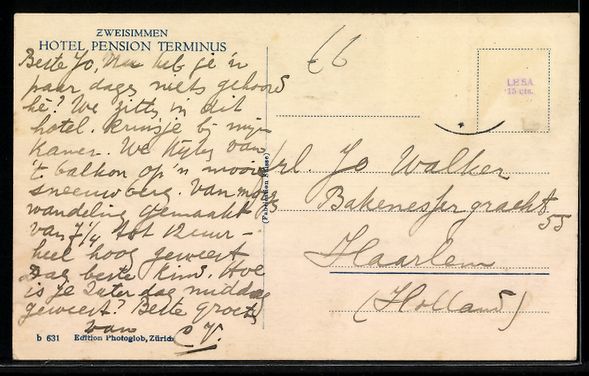 ZWEISIMMEN
HOTEL PENSION TERMINUS
Beste Jo, Nu heb je 'n
paar dagen niets gehoord
hè? We zitten in dit
hotel. Kruisje bij mijn
kamer. We kijken van
't balkon op 'n mooie
sneeuwberg. Van
wandeling gemaakt
van 7 1/4 tot 12 uur -
heel hoog geweest
Dag beste kind. Hoe
is je Zaterdag middag
geweest? Beste groeten
van C.V.
b 631 Edition Photoglob, Zürich
66
LESA
15 cts.
Jo Walker
Bakenessergracht
55
Haarlem
(Holland)